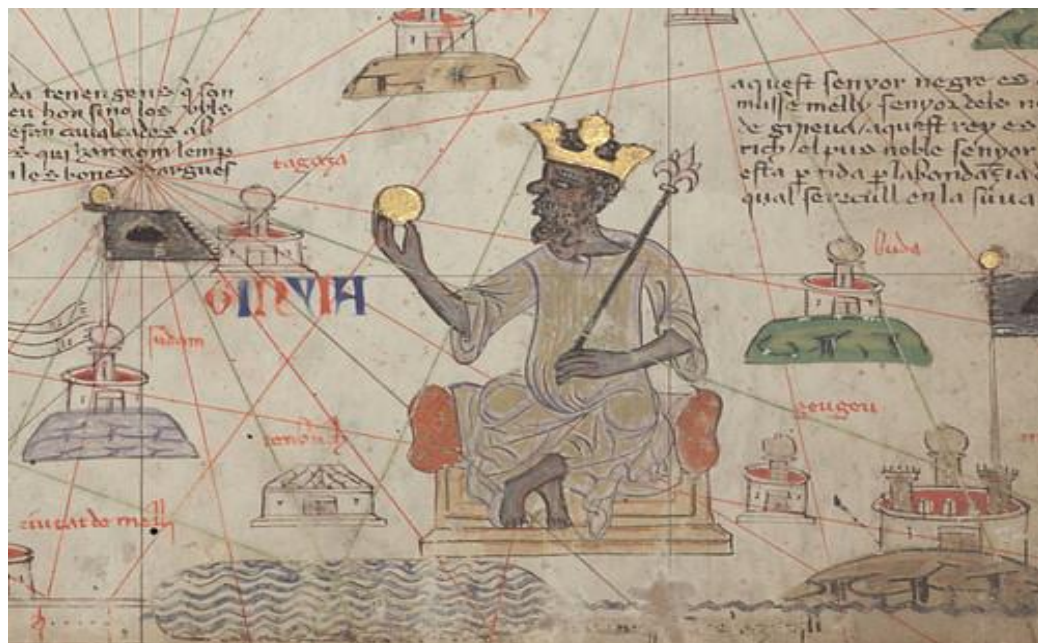 da tenen gens q̃ son
eu hom sino los uyls
e fan caualcades ab
s qui han nom lemp
les bones dargues
aquest senyor negre es
musse melly senyor dels ne
de gineua / aquest rey es
rich / el pus noble senyor
esta ptida p labondaçia d
qual se recull en la suua
tagaza
buda
GINYIA
sudam
geugeu
tenbuch
ciutat de melly